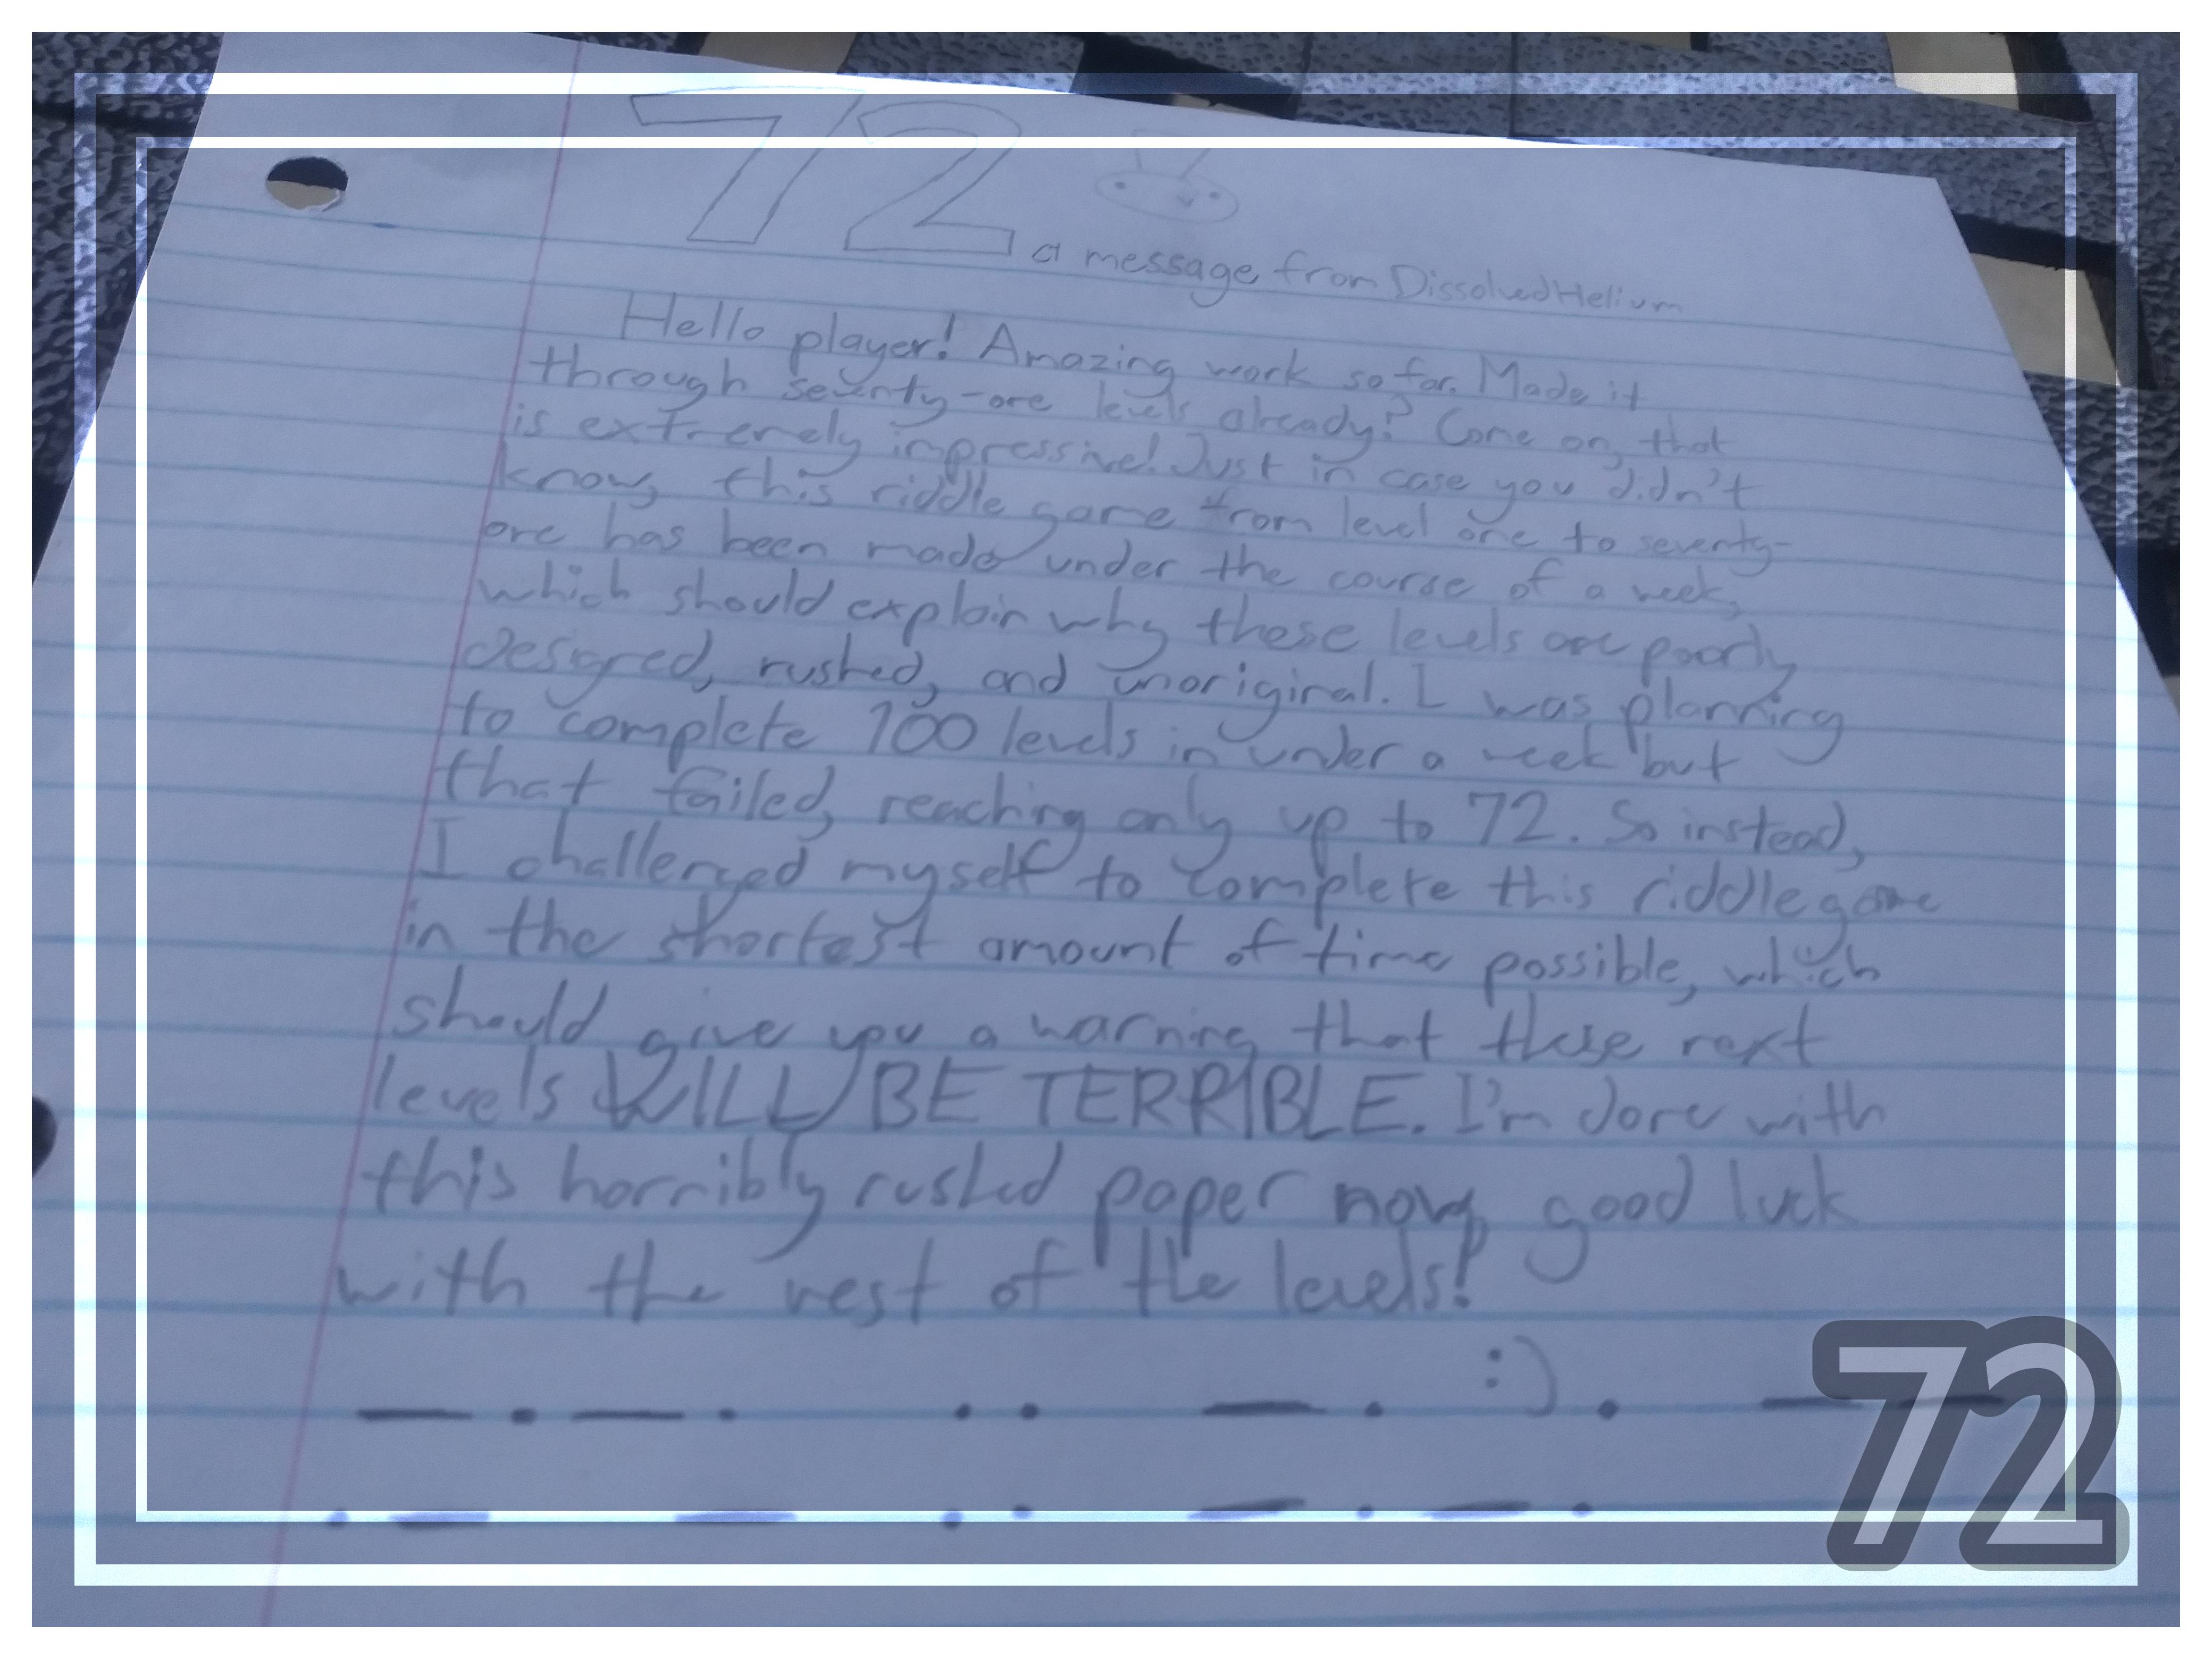 72
a message from DissolvedHelium
Hello player! Amazing work so far. Made it
through seventy-one levels already? Come on, that
is extremely impressive! Just in case you didn't
know, this riddle game from level one to seventy-
one has been made under the course of a week,
which should explain why these levels are poorly
designed, rushed, and unoriginal. I was planning
to complete 100 levels in under a week but
that failed, reaching only up to 72. So instead,
I challenged myself to complete this riddle game
in the shortest amount of time possible, which
should give you a warning that these next
levels WILL BE TERRIBLE. I'm done with
this horribly rushed paper now, good luck
with the rest of the levels!
:)
— . — .   . .   — .   .   — —
. —   —   . .   — . — .
72